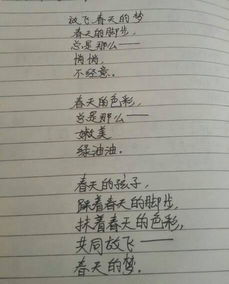 放飞春天的梦
春天的脚步,
总是那么——
悄悄,
不经意。
春天的色彩,
总是那么——
嫩美
绿油油。
春天的孩子,
踩着春天的脚步,
抹着春天的色彩,
共同放飞——
春天的梦.